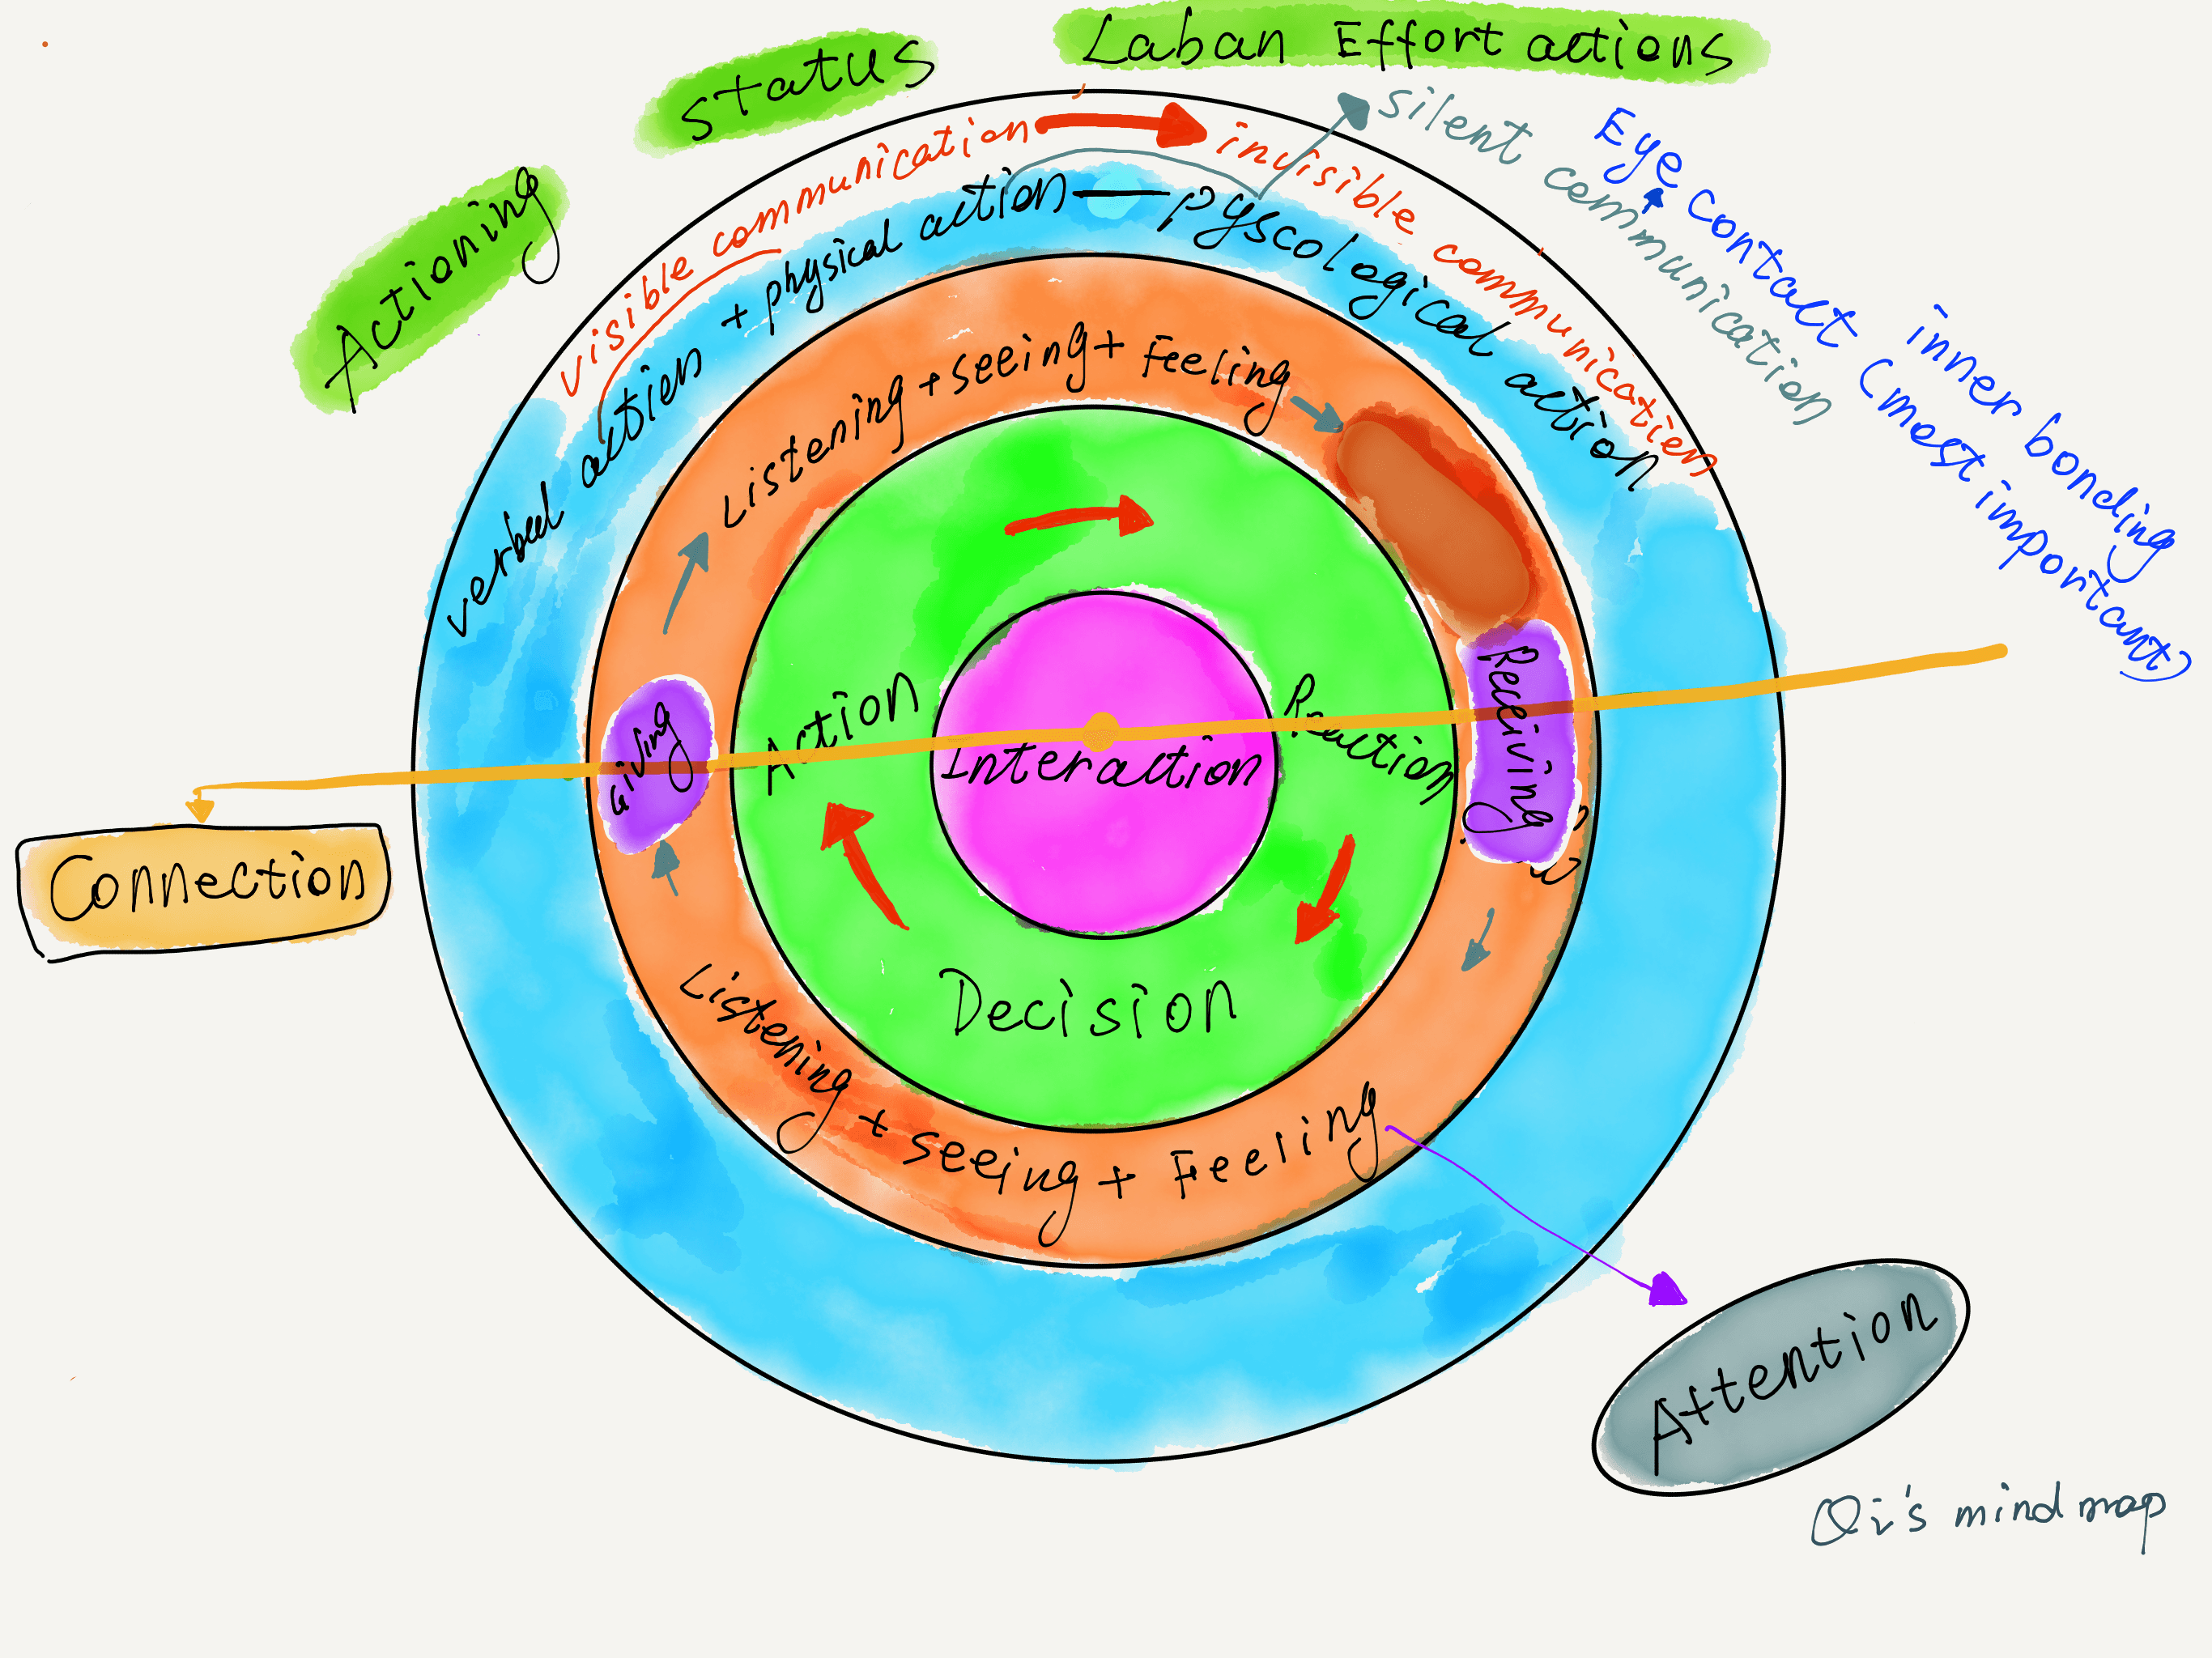 Laban Effort actions
status
Actioning
visible communication
invisible communication
silent communication
Eye contact (most important)
inner bonding
verbal action + physical action — pyscological action
Listening + seeing + Feeling
Giving
Receiving
Action
Reaction
Interaction
Decision
Connection
Listening + seeing + Feeling
Attention
Qi's mind map